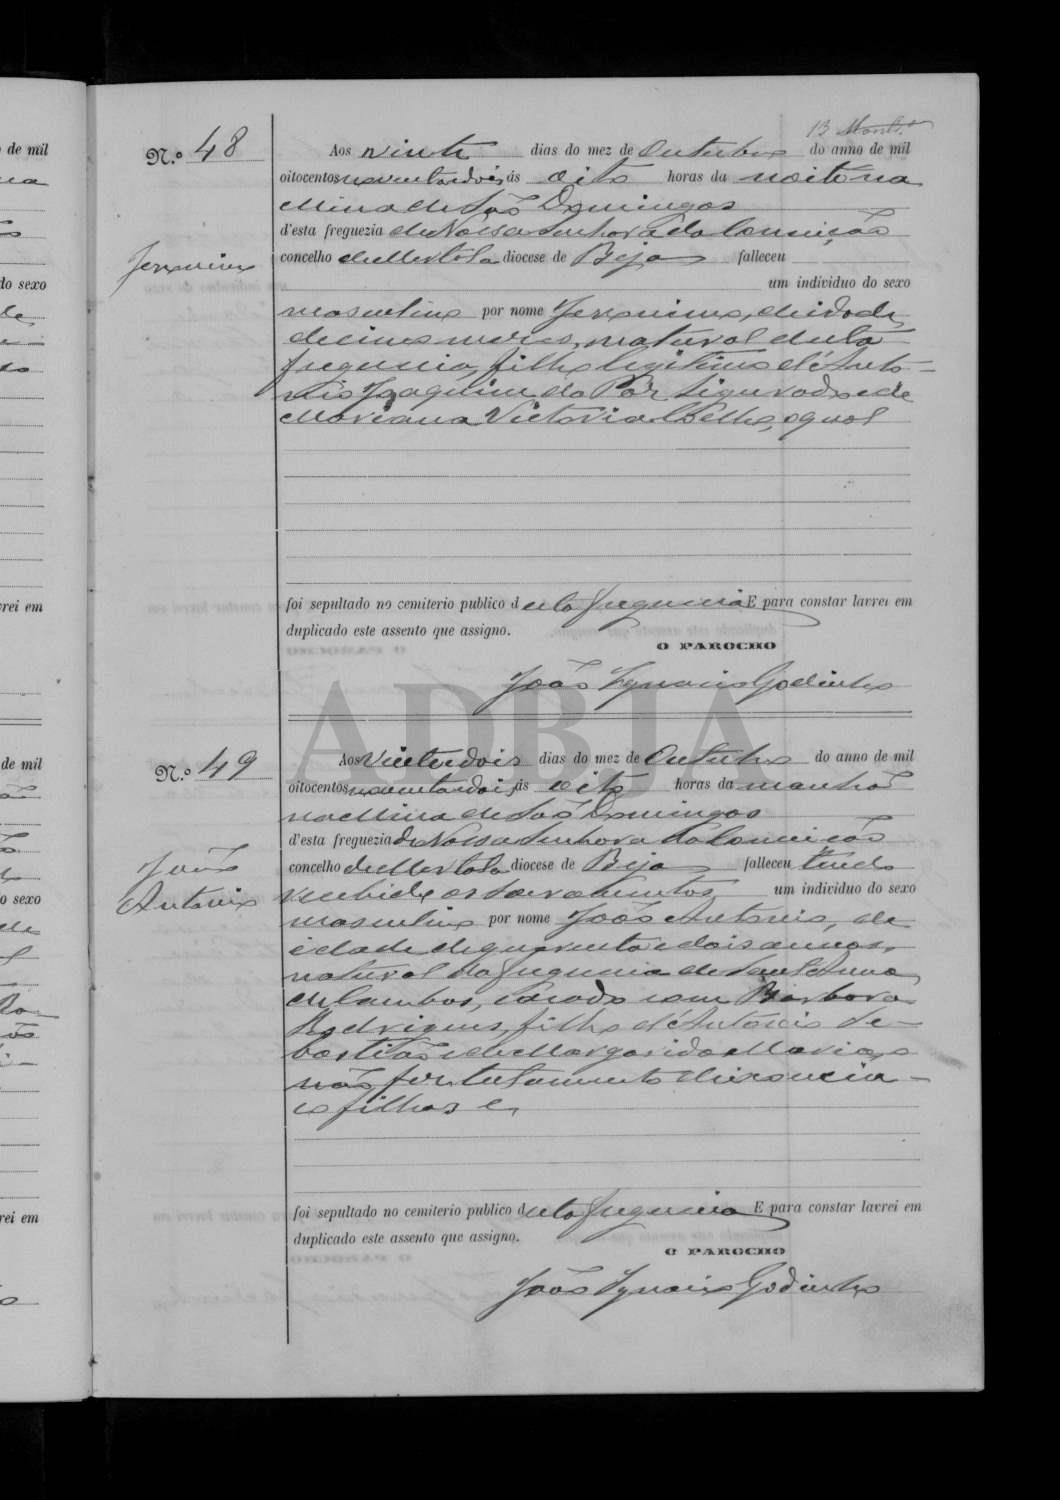 13
N.º 48
Aos vinte dias do mez de Outubro do anno de mil
oitocentos noventa e dois, ás oito horas da noite na
Mina de São Domingos
d'esta freguezia de Nossa Senhora da Conceição
concelho de Mertola diocese de Beja falleceu
Jeronimo
um individuo do sexo
masculino por nome Jeronimo, de idade
de cinco mezes, natural desta
freguesia, filho legitimo d'Anto-
nio Joaquim da Paz, e de
Mariana Victoria Coelho, o qual
foi sepultado no cemiterio publico desta freguesia E para constar lavrei em
duplicado este assento que assigno.
O PAROCHO
João Ignacio Godinho
ADBJA
N.º 49
Aos vinte e dois dias do mez de Outubro do anno de mil
oitocentos noventa e dois, ás oito horas da manhã
na Mina de São Domingos
d'esta freguezia de Nossa Senhora da Conceição
concelho de Mertola diocese de Beja falleceu tendo
João
Antonio
recebido os sacramentos, um individuo do sexo
masculino por nome João Antonio, de
idade de quarenta e dois annos,
natural da freguesia de Sant'Anna
de Cambas, casado com Barbara
Rodrigues, filho d'Antonio Se-
bastião e de Margarida Maria, e
não fez testamento deixou
filhos e,
foi sepultado no cemiterio publico desta freguesia E para constar lavrei em
duplicado este assento que assigno.
O PAROCHO
João Ignacio Godinho